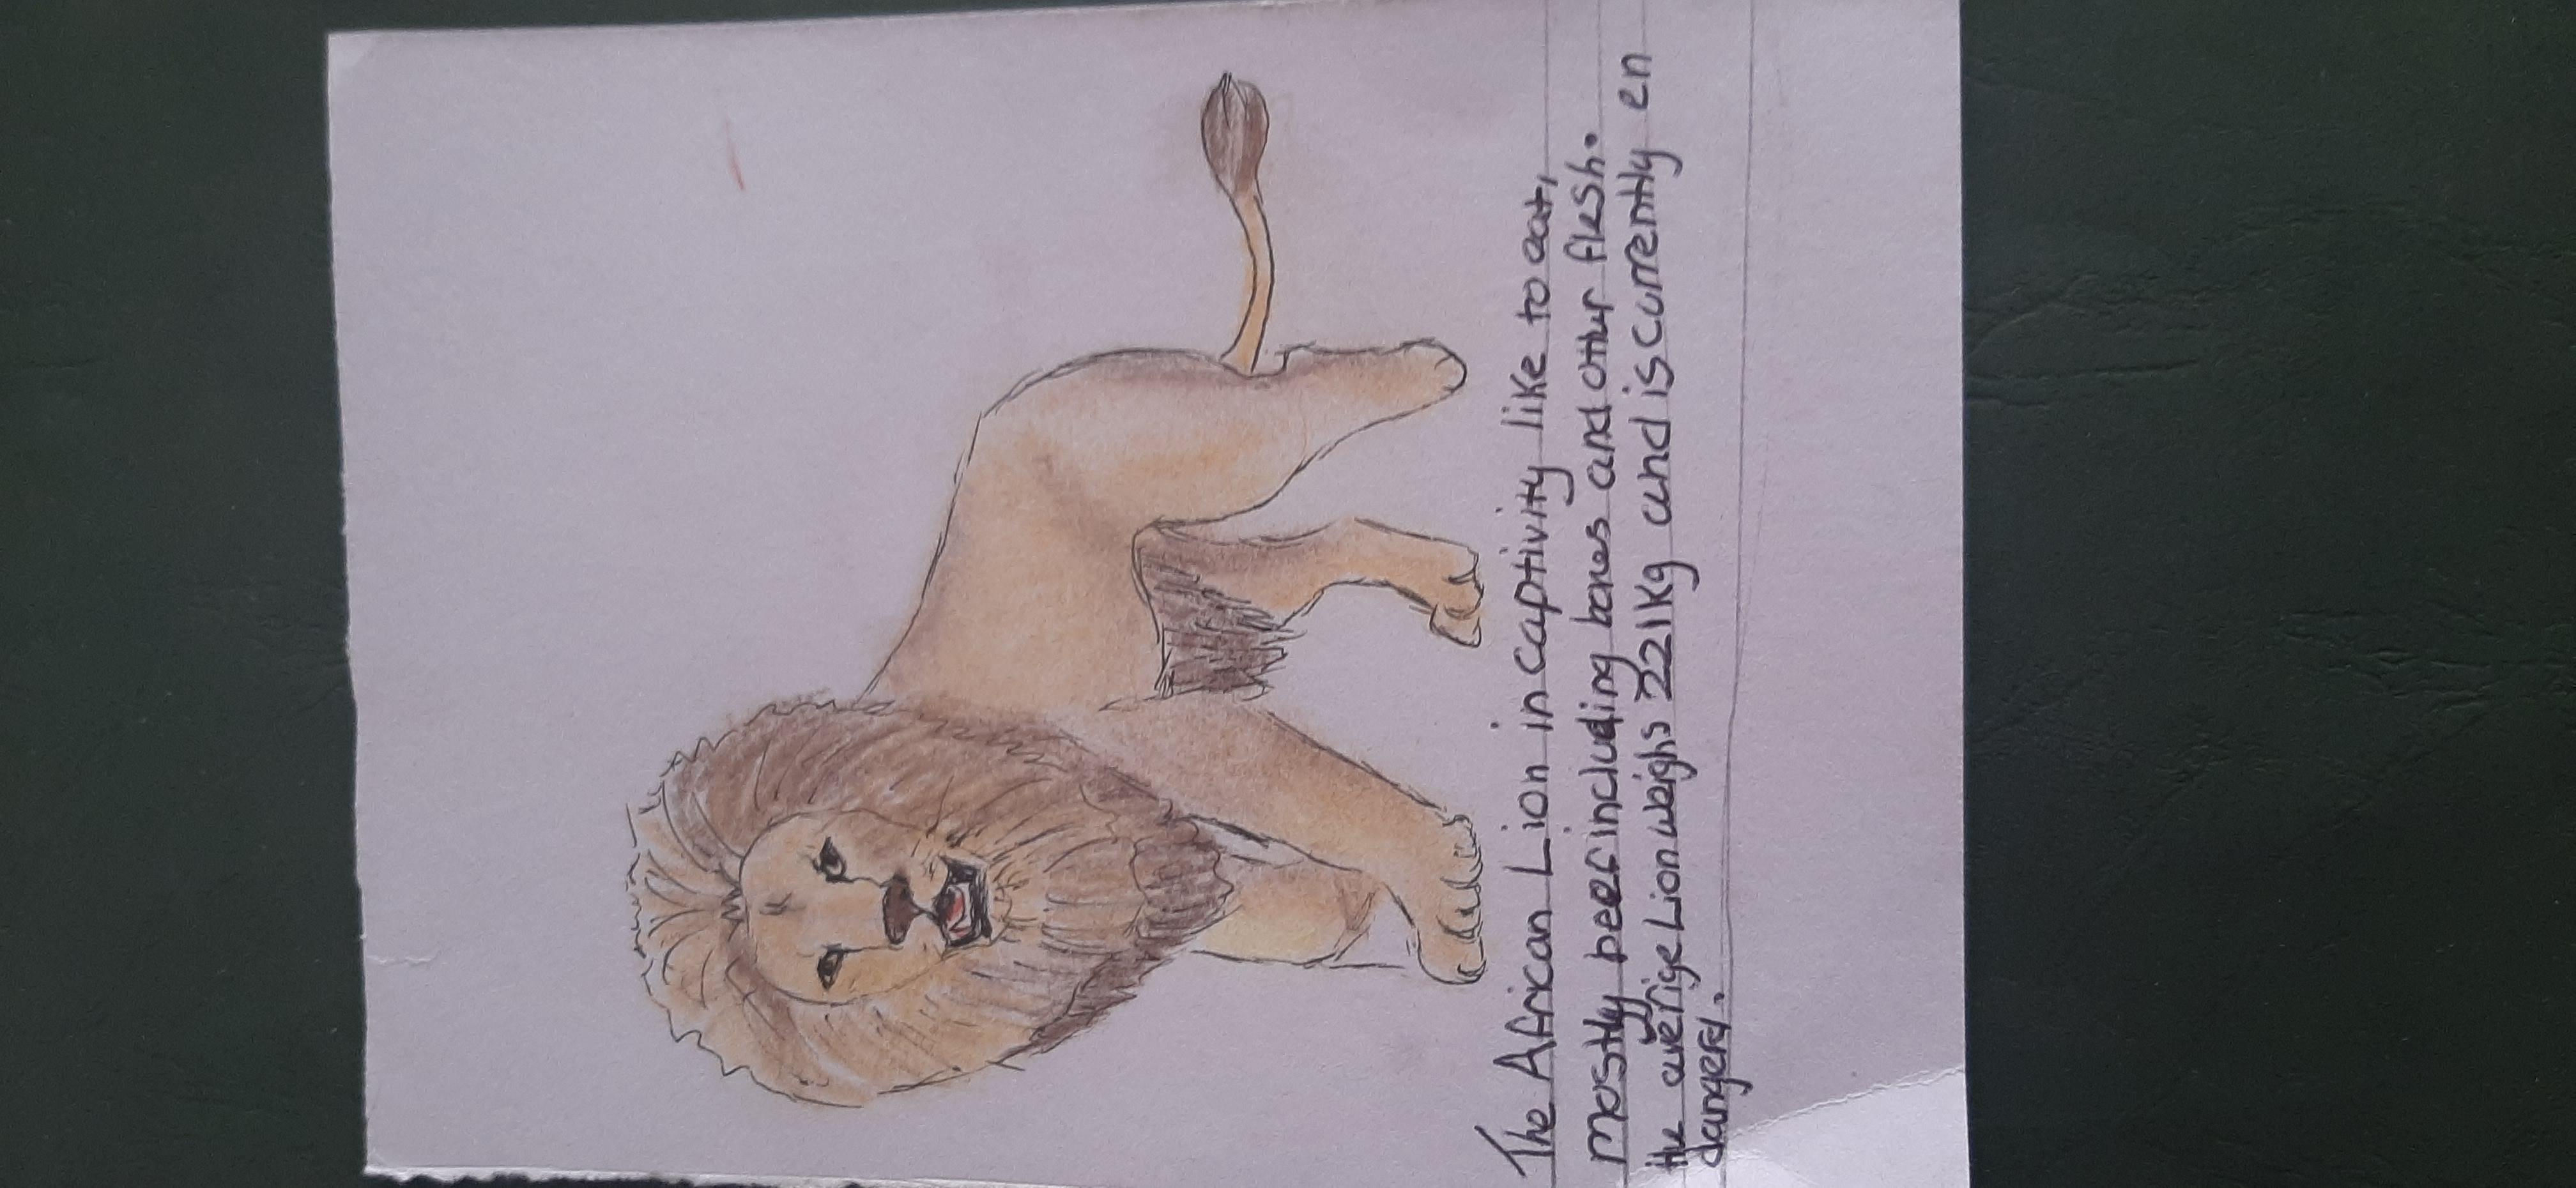 The African Lion in captivity like to eat,
mostly beef including bones and other flesh.
the averige Lion weighs 221kg and is currently en
dangered.